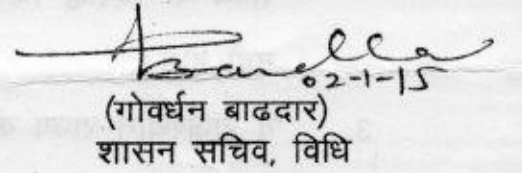 02-1-15
(गोवर्धन बाढदार)
शासन सचिव, विधि